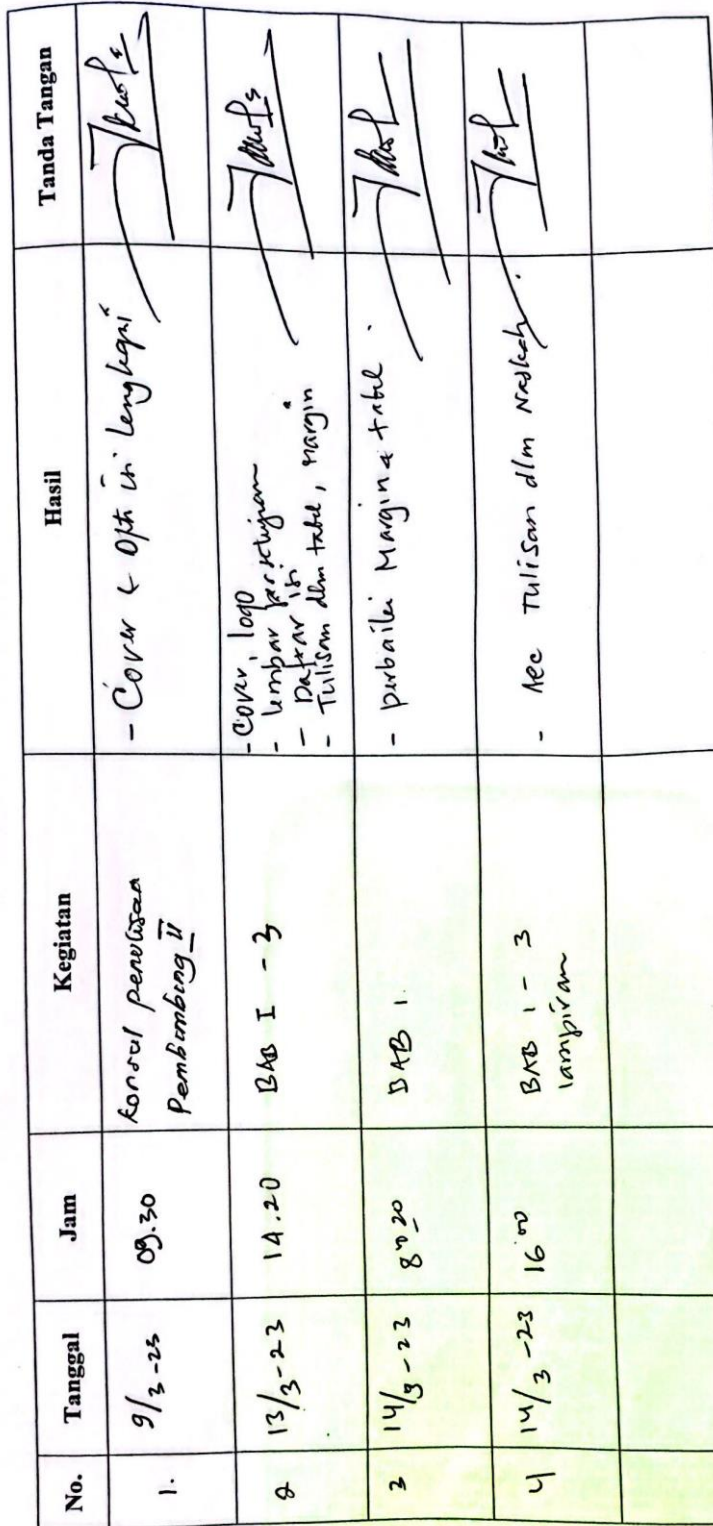 No. Tanggal Jam Kegiatan Hasil Tanda Tangan
1. 9/3-23 09.30 Konsul penulisan - Cover & Dftr isi lengkapi
Pembimbing II
2 13/3-23 14.20 BAB I - 3 - Cover, logo
- lembar persetujuan
- Daftar isi
- Tulisan dlm tabel, margin
3 14/3-23 8 20 BAB 1. - perbaiki Margin & tabel.
4 14/3-23 16 00 BAB 1 - 3 - Acc Tulisan dlm Naskah.
lampiran